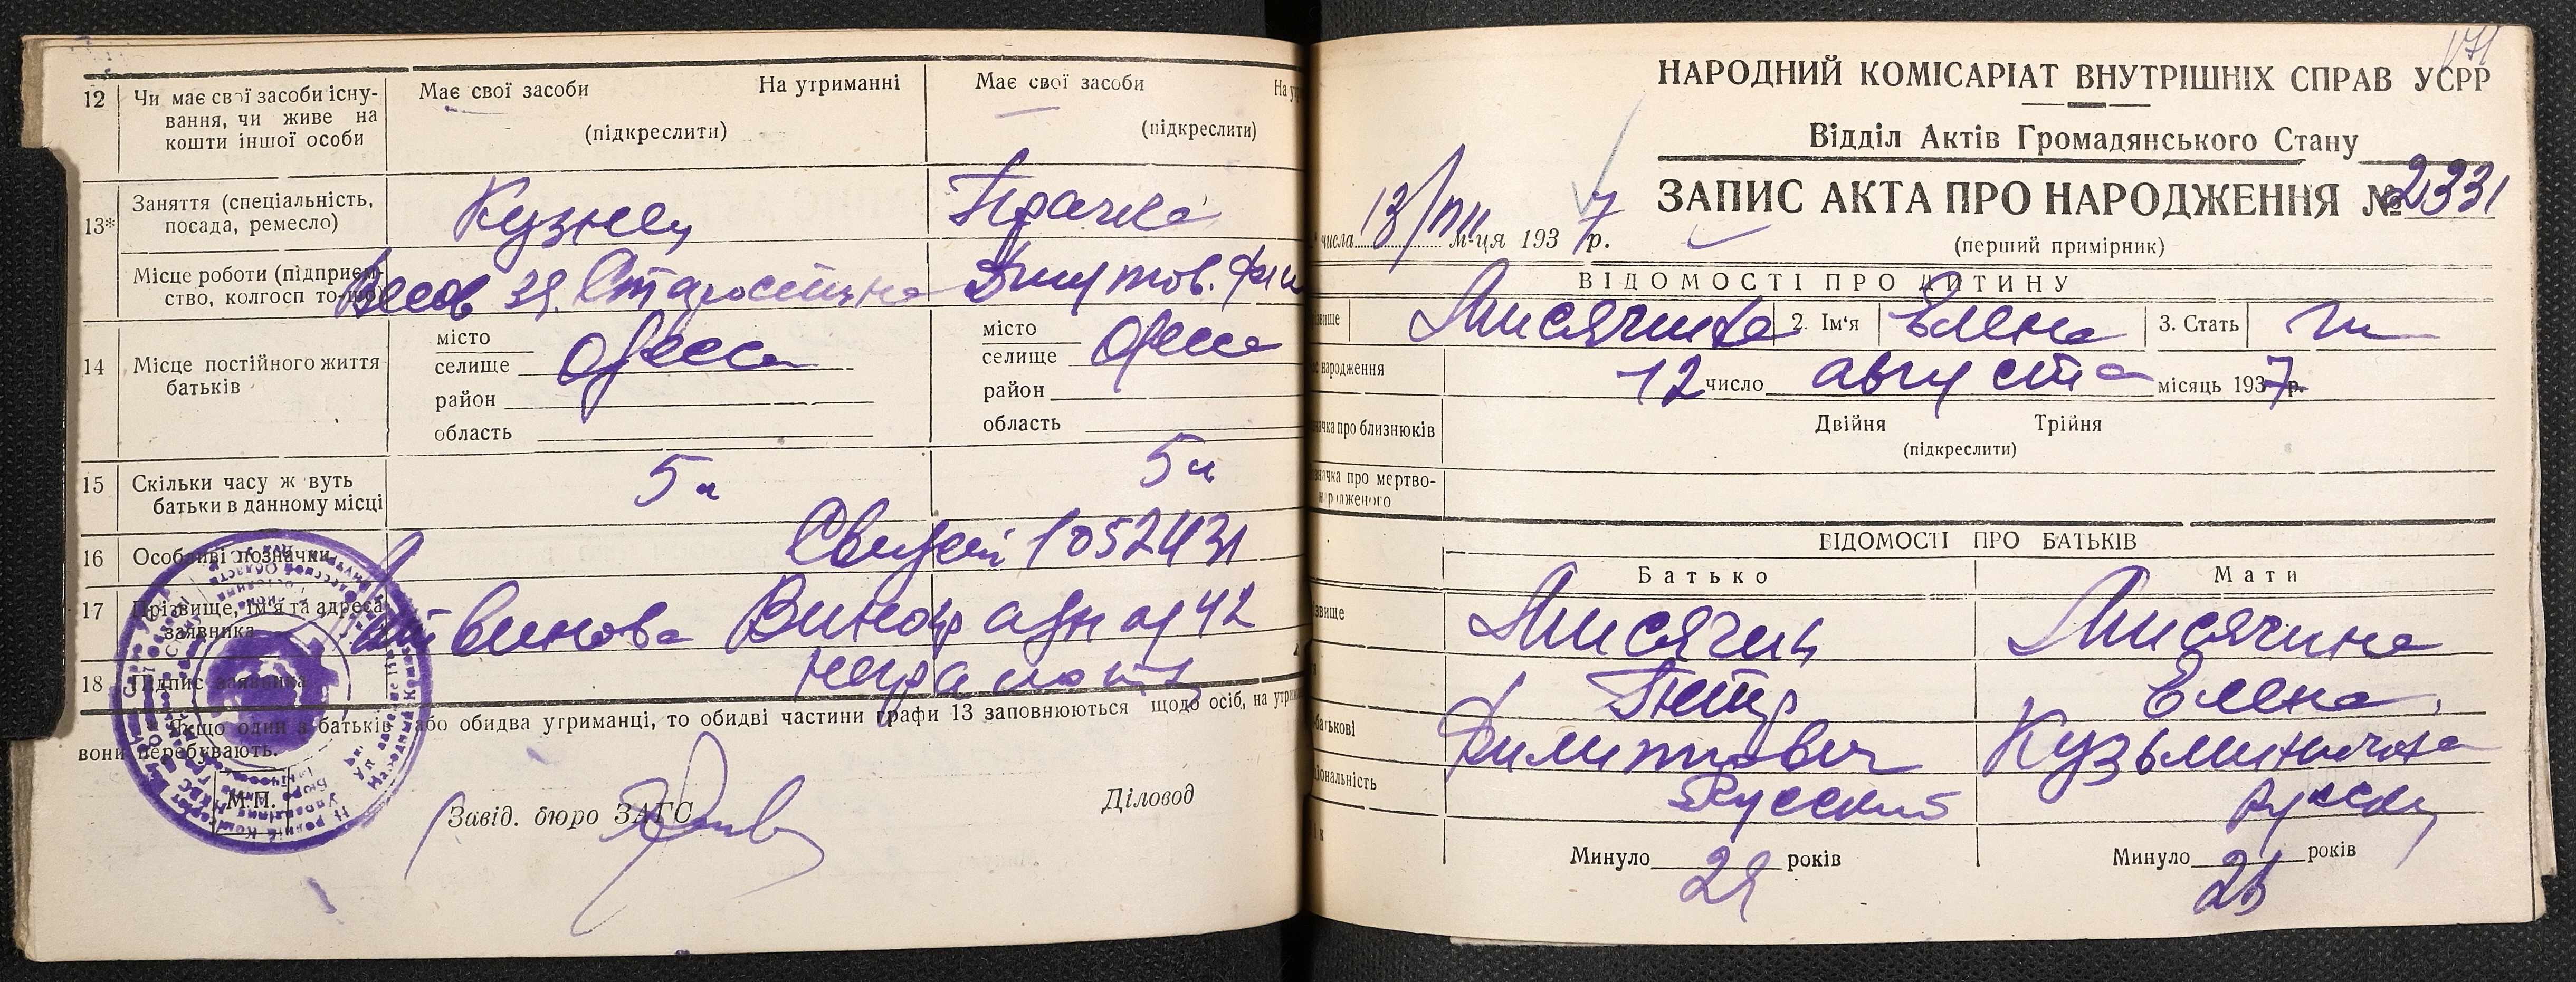 12 Чи має свої засоби існу-
вання, чи живе на
кошти іншої особи
Має свої засоби На утриманні
(підкреслити)
Має свої засоби
(підкреслити)
13* Заняття (спеціальність,
посада, ремесло)
Кузнец
Прачка
Місце роботи (підприєм-
ство, колгосп то-що)
Весов зд. Старостина
14 Місце постійного життя
батьків
місто
селище Одесса
район
область
місто
селище Одесса
район
область
15 Скільки часу живуть
батьки в данному місці
5 л
5 л
16 Особливі позначки
1052431
17 Прізвище, ім'я та адреса
заявника
Литвинова Виноградная 42
18 Підпис заявника
неграмотн
Якщо один з батьків або обидва утриманці, то обидві частини графи 13 заповнюються щодо осіб, на
вони перебувають.
М.П.
Завід. бюро ЗАГС
Діловод
171
НАРОДНИЙ КОМІСАРІАТ ВНУТРІШНІХ СПРАВ УСРР
Відділ Актів Громадянського Стану
ЗАПИС АКТА ПРО НАРОДЖЕННЯ № 2331
числа 13/VIII м-ця 1937 р.
(перший примірник)
ВІДОМОСТІ ПРО ДИТИНУ
2. Ім'я Елена 3. Стать ж
народження 12 число августа місяць 1937 р.
про близнюків
Двійня Трійня
(підкреслити)
про мертво-
народженого
ВІДОМОСТІ ПРО БАТЬКІВ
Батько Мати
Петр Елена
Димитрович Кузьминична
Русский русск
Минуло 29 років
Минуло 25 років